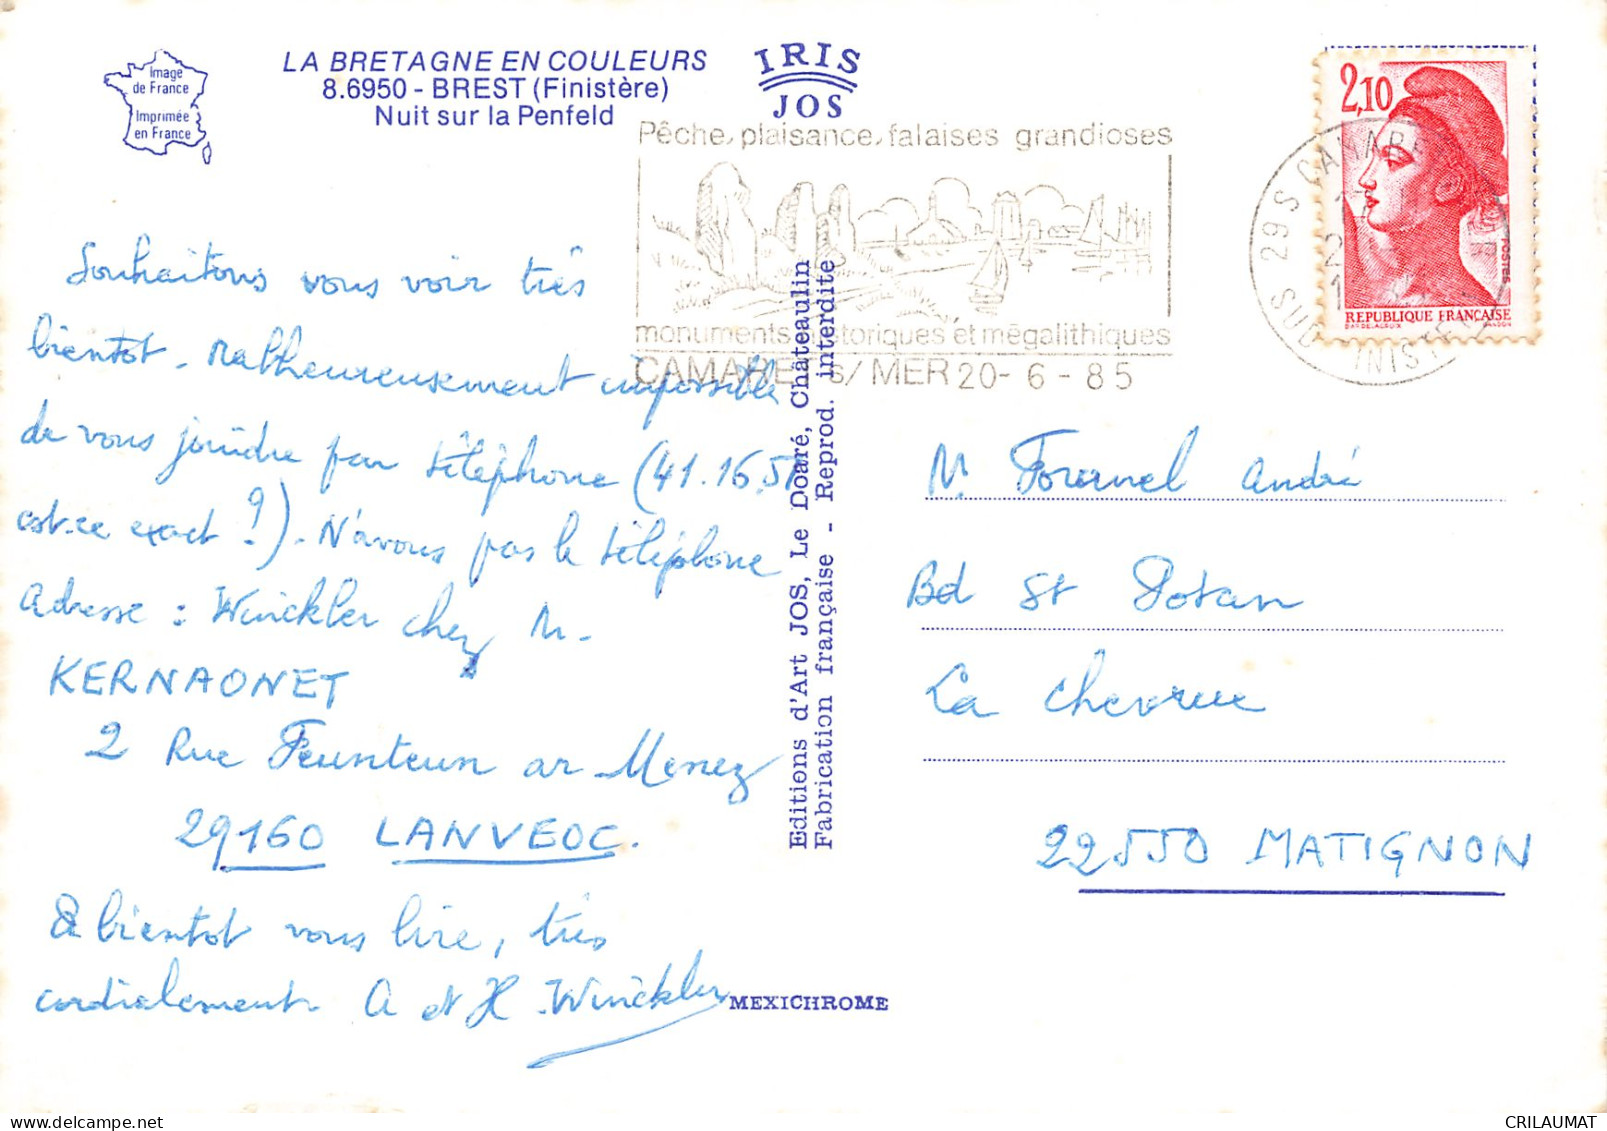 Image
de France
Imprimée
en France
LA BRETAGNE EN COULEURS
8.6950 - BREST (Finistère)
Nuit sur la Penfeld
IRIS
JOS
Pêche, plaisance, falaises grandioses
monuments historiques et mégalithiques
CAMARET s/ MER 20-6-85
2,10
REPUBLIQUE FRANÇAISE
POSTES
29 S CAMARET
SUD FINISTERE
Souhaitons vous voir très
bientôt. Malheureusement impossible
de vous joindre par téléphone (41.16.51
est-ce exact ?). N'avons pas le téléphone
Adresse : Winckler chez M.
KERNAONET
2 Rue Feunteun ar Menez
29160 LANVEOC.
A bientôt vous lire, très
cordialement A et H Winckler
Editions d'Art JOS, Le Doaré, Châteaulin
Fabrication française - Reprod. interdite
MEXICHROME
M. Fournel André
Bd St Potan
La Chevrue
22550 MATIGNON
CRILAUMAT